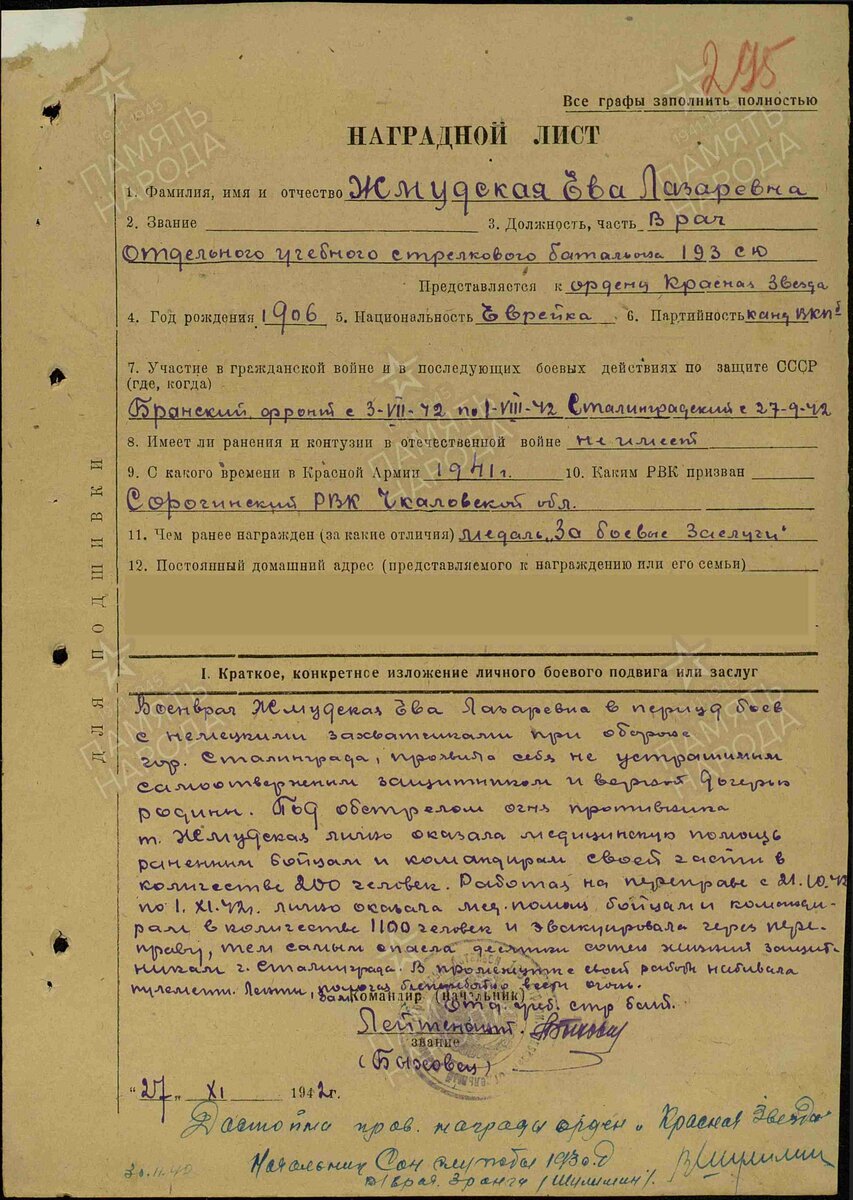 295
Все графы заполнить полностью
НАГРАДНОЙ ЛИСТ
1. Фамилия, имя и отчество Жмудская Ева Лазаревна
2. Звание 3. Должность, часть Врач
Отдельного учебного стрелкового батальона 193 сд
Представляется к ордену Красная Звезда
4. Год рождения 1906 5. Национальность Еврейка 6. Партийность канд ВКПб
7. Участие в гражданской войне и в последующих боевых действиях по защите СССР
(где, когда)
Брянский фронт с 3-VII-42 по 1-VIII-42 Сталинградский с 27-9-42
8. Имеет ли ранения и контузии в отечественной войне не имеет
9. С какого времени в Красной Армии 1941г. 10. Каким РВК призван
Сорочинский РВК Чкаловской обл.
11. Чем ранее награжден (за какие отличия) медаль „За боевые заслуги"
12. Постоянный домашний адрес (представляемого к награждению или его семьи)
ДЛЯ ПОДШИВКИ
I. Краткое, конкретное изложение личного боевого подвига или заслуг
Военврач Жмудская Ева Лазаревна в период боев
с немецкими захватчиками при обороне
гор. Сталинграда, проявила себя не устрашимым
самоотверженим защитником и верной дочерью
родины. Под обстрелом огня противника
т. Жмудская лично оказала медицинскую помощь
раненним бойцам и командирам своей части в
количестве 200 человек. Работая на переправе с 21.10.42
по 1.XI.42г. лично оказала мед. помощ бойцам и команди-
рам в количестве 1100 человек и эвакуировала через пере-
праву, тем самым спасла десятки сотен жизней защит-
никам г. Сталинграда. В промежутке своей работы набивала
пулеметн. ленты, помогая бесперебойно вести огонь.
Командир (начальник)
Отд. учеб. стр. бат.
Лейтенант
звание
(Быховец)
"27" XI 1942г.
Достойна прав. награды орден „Красная Звезда
Начальник Сан службы 193 с.д
в/врач 3 ранга (Шулимин).
30.11.42
ПАМЯТЬ НАРОДА
1941-1945